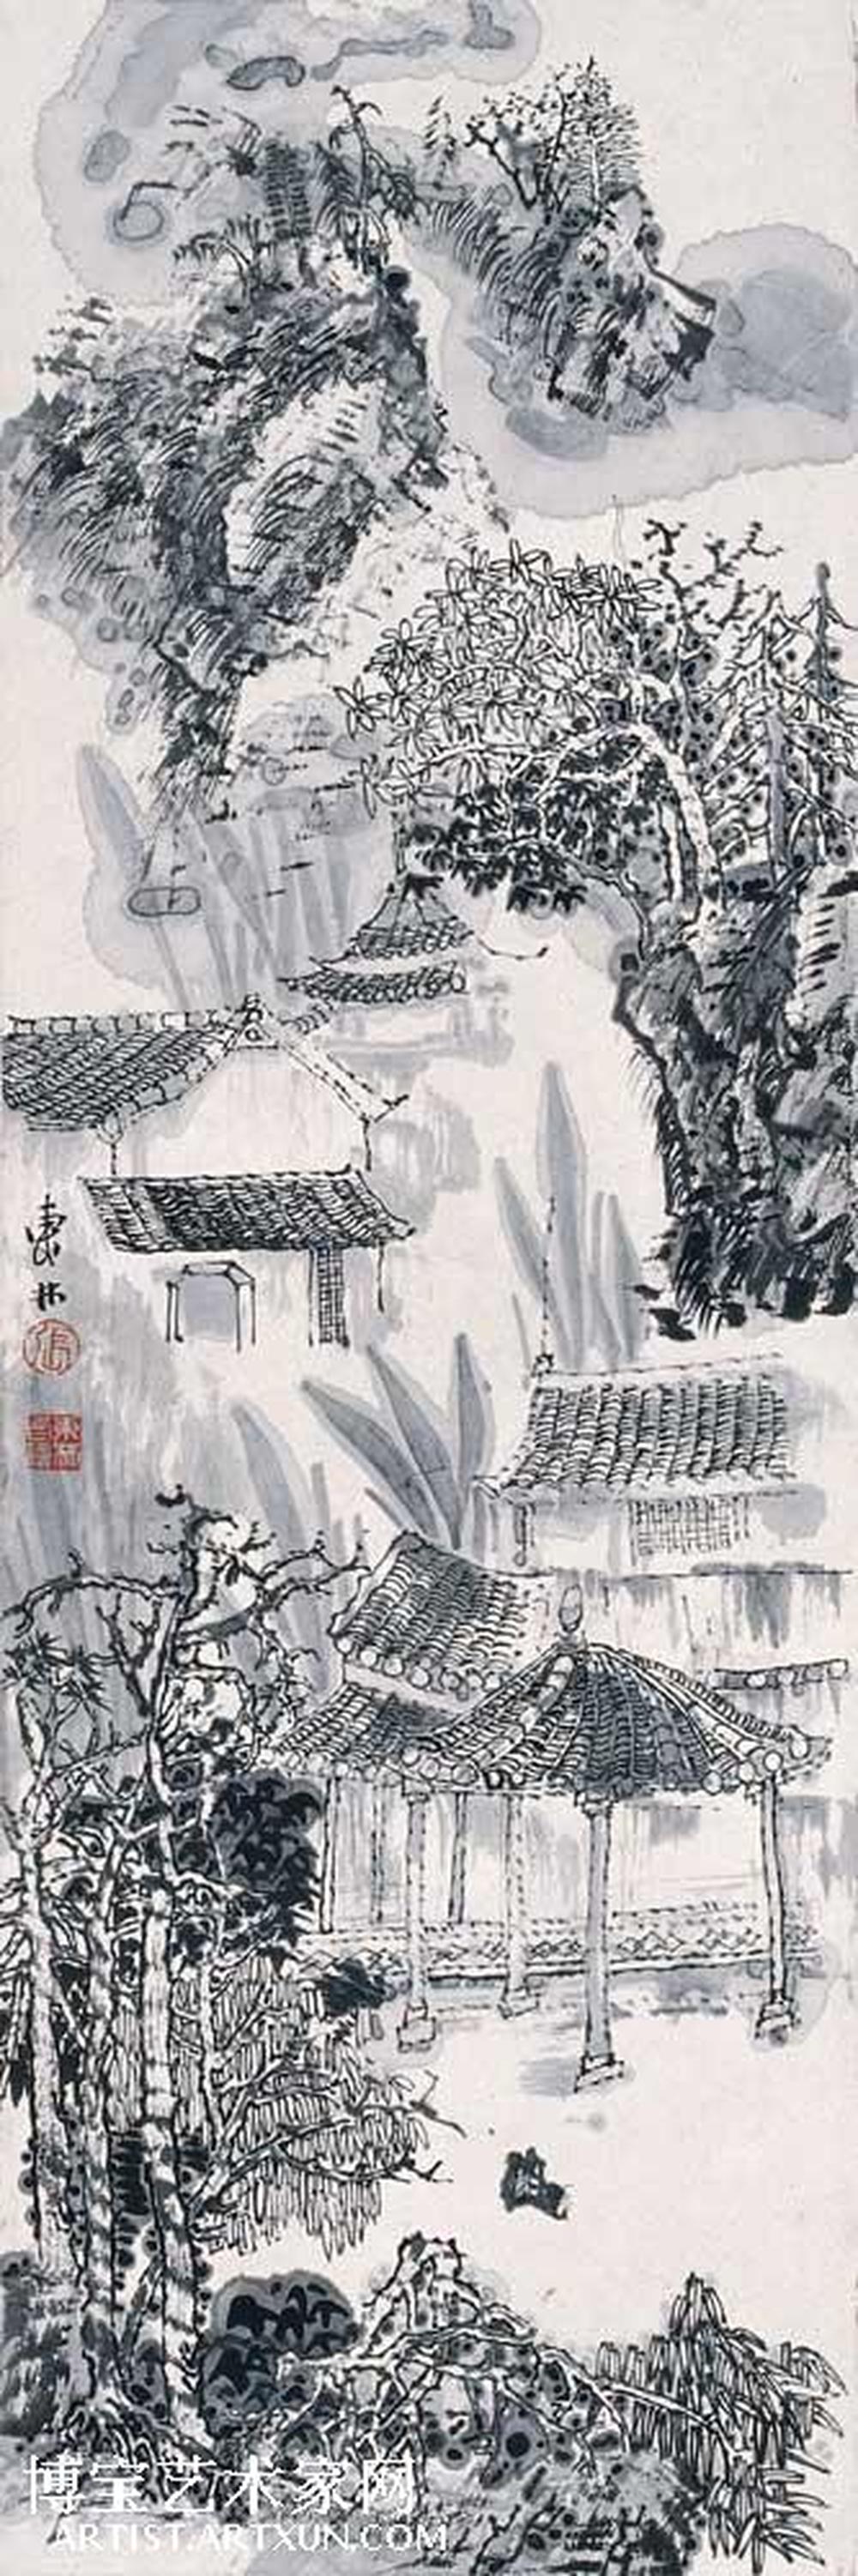 東林
博宝艺术家网
ARTIST.ARTXUN.COM